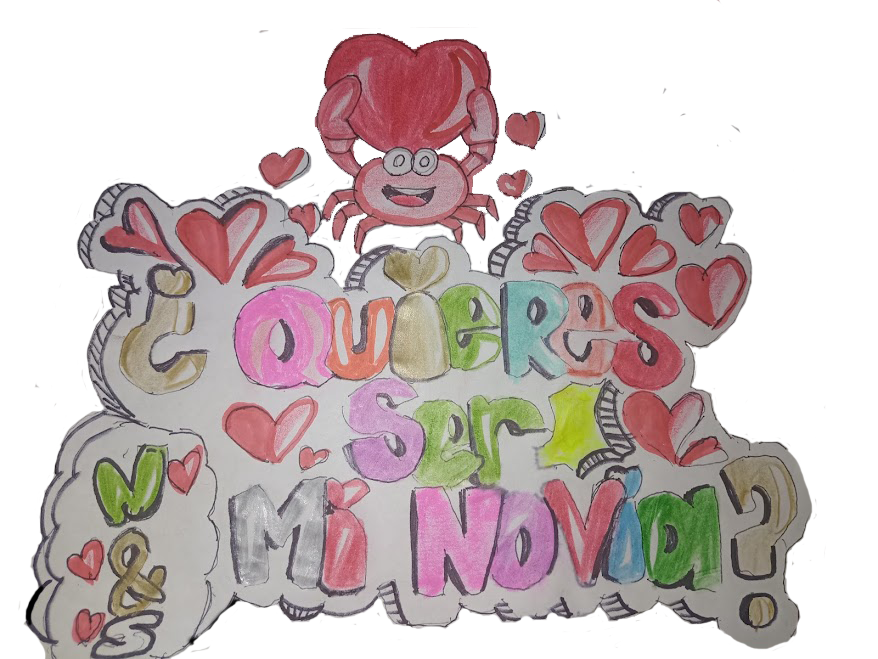 ¿Quieres
Ser
Mi Novia?
N
&
S